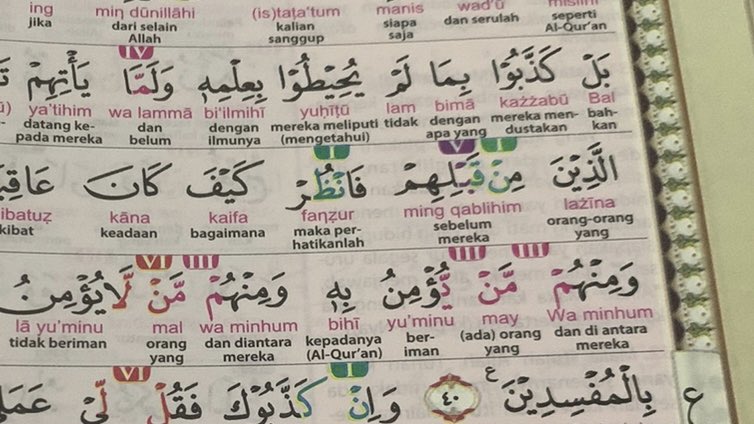 ing miṇ dūnillāhi (is)taṭa'tum manis wad'ū
jika dari selain kalian siapa dan serulah seperti
Allah sanggup saja Al-Qur'an
IV
بَلْ كَذَّبُوْا بِمَا لَمْ يُحِيْطُوْا بِعِلْمِهٖ وَلَمَّا يَأْتِهِمْ
ya'tihim wa lammā bi'ilmihī yuḥīṭū lam bimā każżabū Bal
datang ke- dan dengan mereka meliputi tidak dengan mereka men- bah-
pada mereka belum ilmunya (mengetahui) apa yang dustakan kan
I V I
الَّذِيْنَ مِنْ قَبْلِهِمْ فَانْظُرْ كَيْفَ كَانَ عَاقِ
ibatuẓ kāna kaifa faṇẓur ming qablihim lażīna
kibat keadaan bagaimana maka per- sebelum orang-orang
hatikanlah mereka yang
VI III III III
وَمِنْهُمْ مَّنْ يُّؤْمِنُ بِهٖ وَمِنْهُمْ مَّنْ لَّا يُؤْمِنُ
lā yu'minu mal wa minhum bihī yu'minu may Wa minhum
tidak beriman orang dan diantara kepadanya ber- (ada) orang dan di antara
yang mereka (Al-Qur'an) iman yang mereka
VI I
بِالْمُفْسِدِيْنَ ࣖ ٤٠ وَاِنْ كَذَّبُوْكَ فَقُلْ لِّيْ عَمَلِ
ع